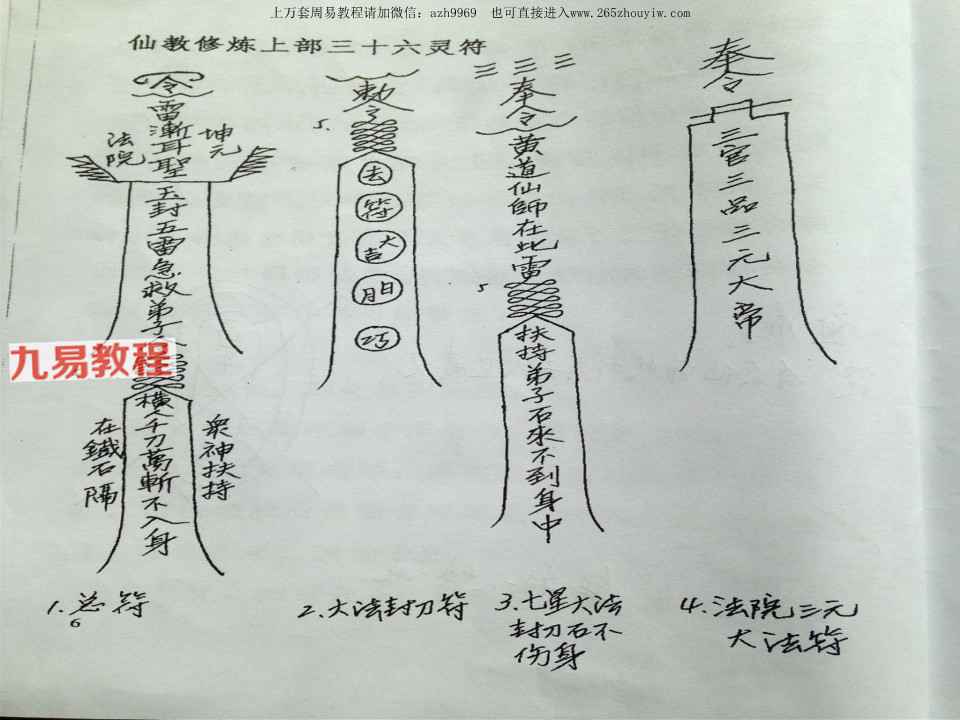 上万套周易教程请加微信：azh9969 也可直接进入www.265zhouyiw.com
仙教修炼上部三十六灵符
令
雷漸耳聖
法院
坤元
玉封五雷急救弟子
九易教程
橫人千刀萬斬不入身
在鐵石隔
眾神扶持
1.总符
6
敕令
5.
去
符
大吉
日月
巧
2.大法封刀符
三三三
奉令
黄道仙師在此雷
5
扶持弟子石來不到身中
3.七星大法
封刀石不
伤身
奉令
三官三品三元大帝
4.法院三元
大法符